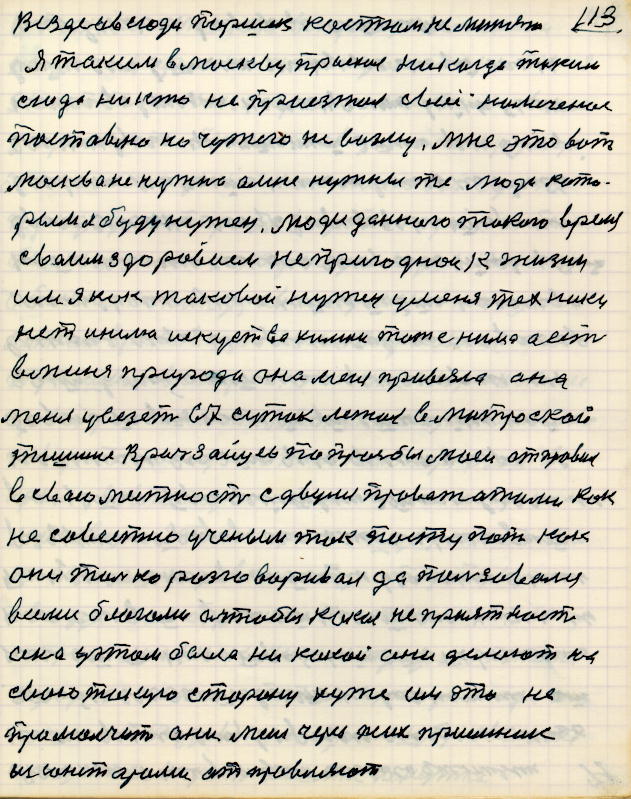 113.
я таким в москву приехал никогда таким
сюда никто не приезжал свое намеченое
поставлю но чужого не возму, мне это вот
москва не нужна а мне нужны те люди кото-
рым я буду нужен, люди данного такого время
сваим здоровием непригодное к жизни
им я как таковой нужен у меня техники
нет и нима искуства химии тоже нима а есть
вминя природа она меня привезла она
меня увезет 67 суток лежал в матроской
тишине врач зайцев по прозбы моей отправил
в сваю митност с двумя правожатыми как
не совестно ученым так поступать как
они толко разговаривал да ползовали
всеми благами а чтобы какая неприятност
она у этом была ни какой они делают на
сваю такую сторону хуже им это не
прамолчит они меня через жих приемник
и санитарами отправляют